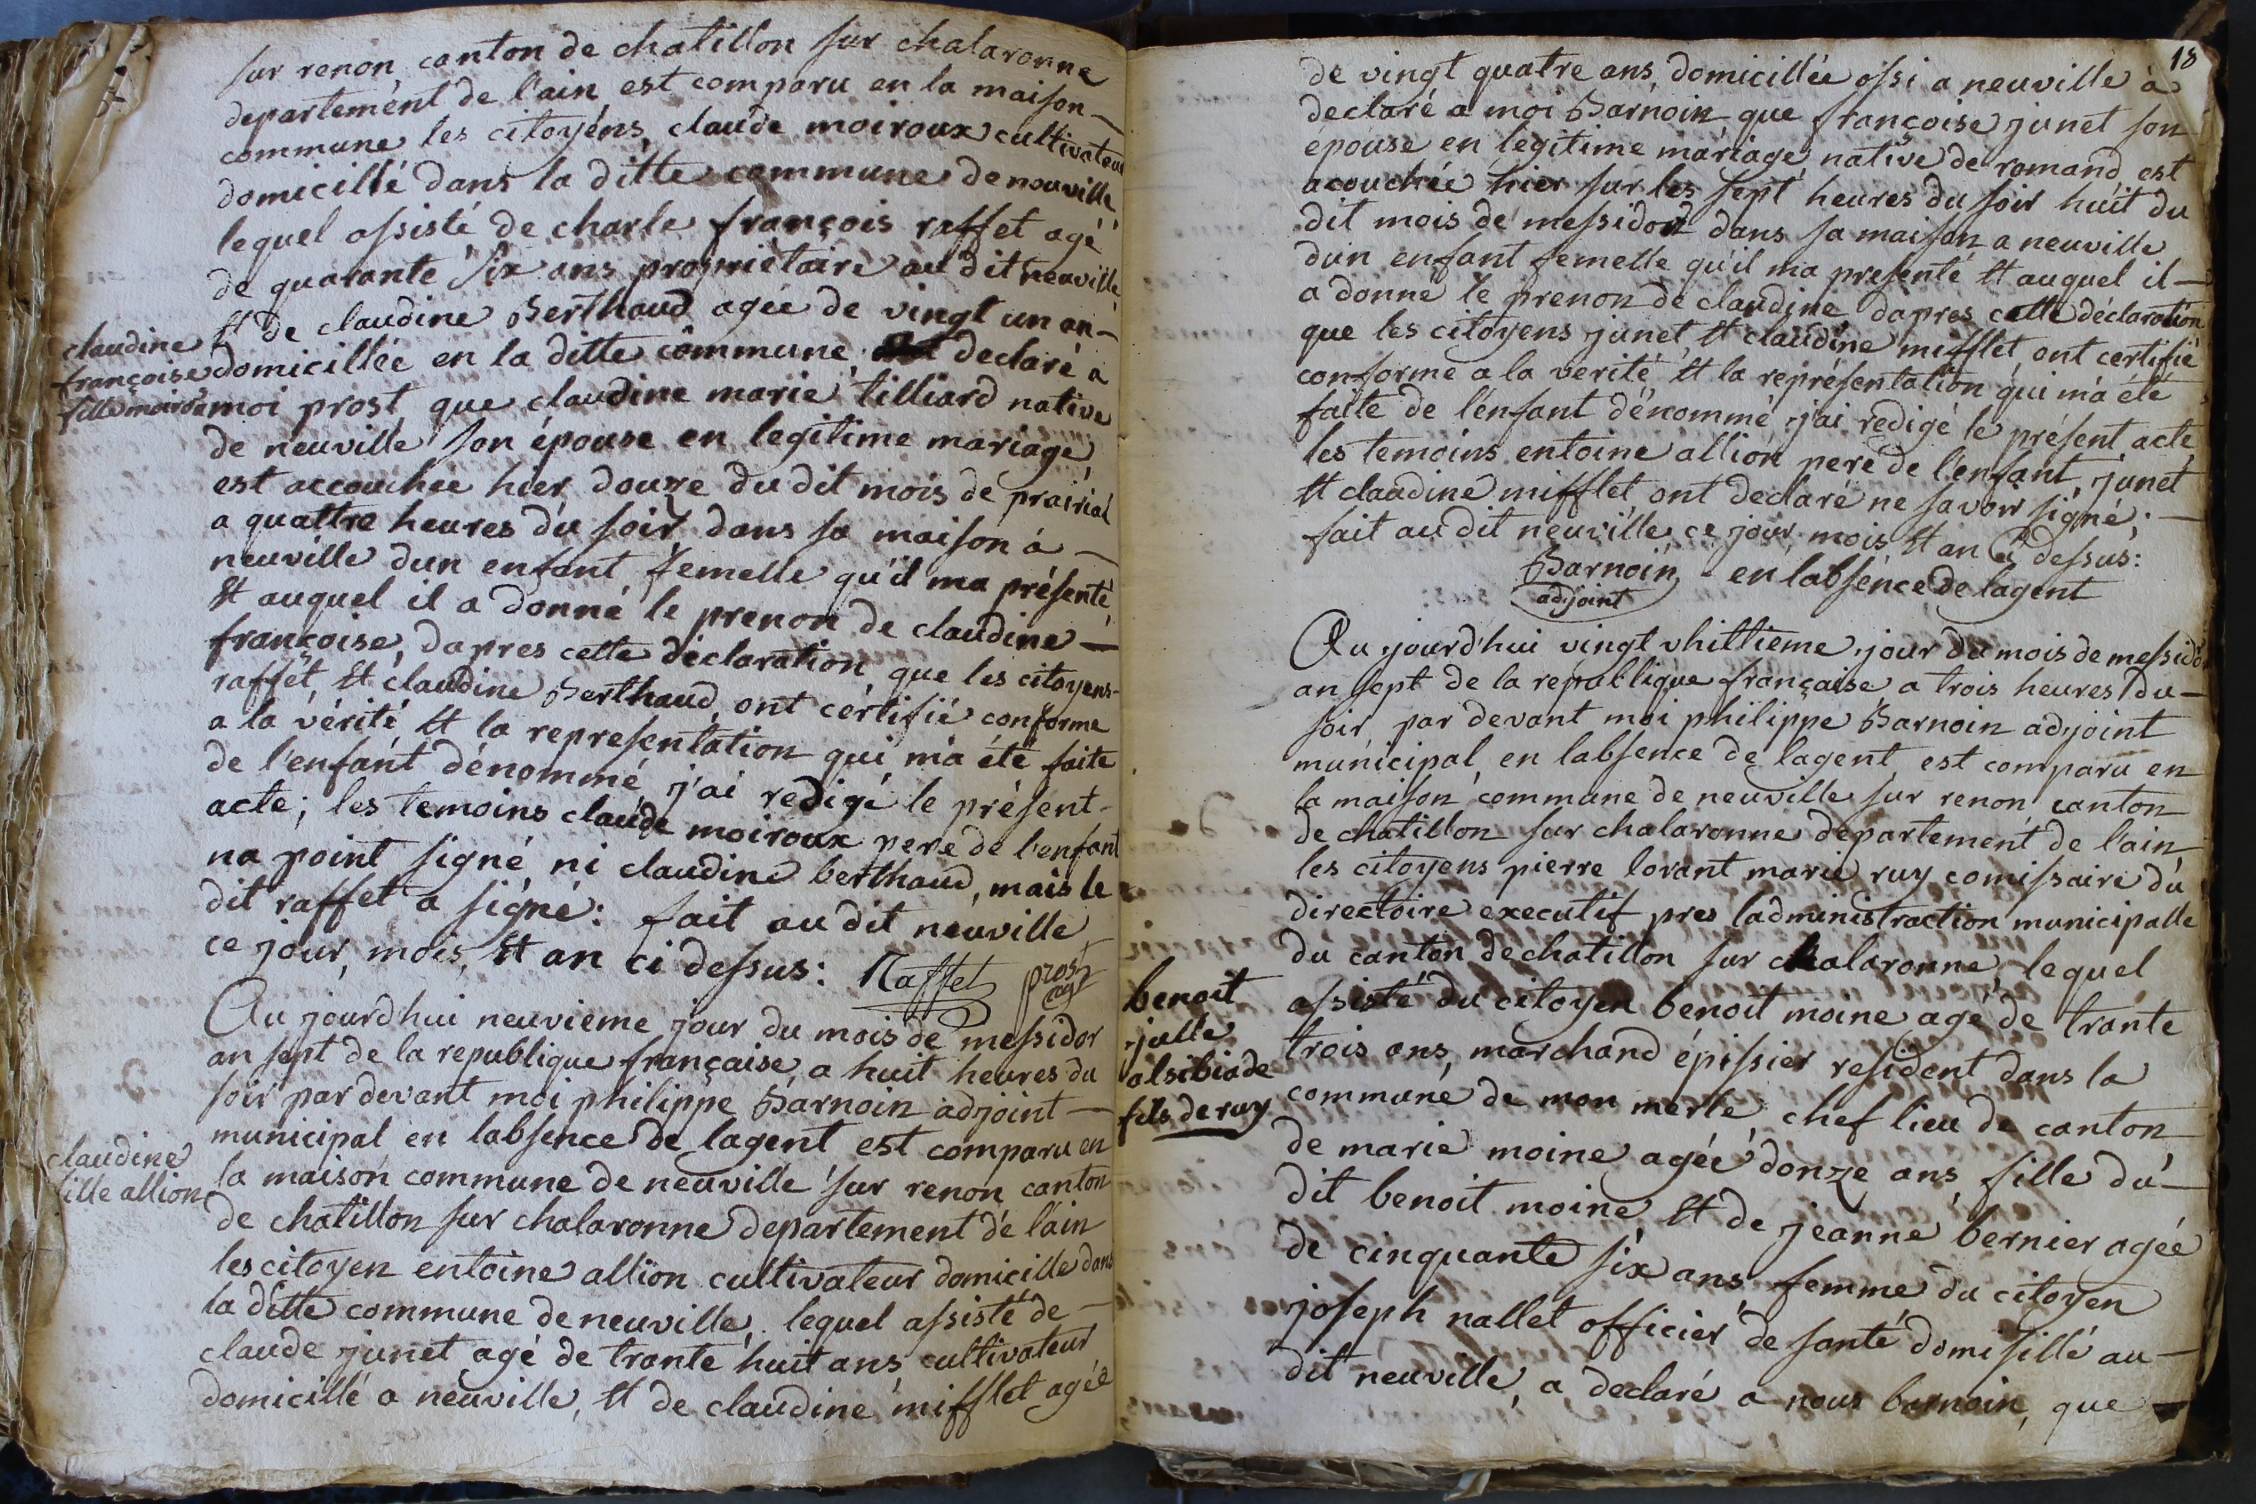 sur renon canton de chatillon sur chalaronne
departement de l'ain est comparu en la maison
commune les citoyens claude moiroux cultivateur
domicillié dans la ditte commune de neuville
lequel assisté de charle françois raffet agé
de quarante six ans propriétaire au dit neuville
et de claudine Berthaud agée de vingt un an
claudine
françoise
fille moiroux
domicillée en la ditte commune, declaré a
moi prost que claudine marie tilliard native
de neuville son épouse en legitime mariage
est accouchée hier douze du dit mois de prairial
a quattre heures du soir dans sa maison à
neuville dun enfant femelle qu'il ma présenté
et auquel il a donné le prenon de claudine
françoise, dapres cette déclaration que les citoyens
raffet et claudine Berthaud ont certifié conforme
a la vérité et la representation qui m'a été faite
de l'enfant dénommé j'ai redigé le présent
acte; les temoins claude moiroux pere de l'enfant
na point signé ni claudine berthaud, mais le
dit raffet a signé: fait au dit neuville
ce jour, mois, et an ci dessus: Raffet prost agt
Au jourd'hui neuvieme jour du mois de messidor
an sept de la republique française a huit heures du
soir par devant moi philippe Barnoin adjoint
municipal en labsence de lagent est comparu en
claudine
fille allion
la maison commune de neuville sur renon canton
de chatillon sur chalaronne departement de l'ain
les citoyen entoine allion cultivateur domicille dans
la ditte commune de neuville, lequel assisté de
claude junet agé de trante huit ans cultivateur
domicillé a neuville, et de claudine mifflet agée
18
de vingt quatre ans domicillée ossi a neuville à
declaré a moi Barnoin que françoise junet son
épouse en legitime mariage native de romand est
acouchée hier sur les sept heures du soir huit du
dit mois de messidor dans sa maison a neuville
dun enfant femelle qu'il ma presenté et auquel il
a donne le prenon de claudine dapres cette déclaration
que les citoyens junet et claudine mifflet, ont certifié
conforme a la verité et la représentation qui m'a été
faite de l'enfant dénommé j'ai redigé le présent acte
les temoins entoine allion pere de l'enfant, junet
et claudine mifflet ont declaré ne savoir signé;
fait au dit neuville ce jour mois et an ci dessus:
Barnoin en labsence de lagent
adjoint
Au jourd'hui vingt vhittieme jour du mois de messidor
an sept de la republique française a trois heures du
soir par devant moi philippe Barnoin adjoint
municipal en labsence de lagent est comparu en
la maison commune de neuville sur renon canton
de chatillon sur chalaronne departement de l'ain
les citoyens pierre lorant marie ruy comissaire du
directoire executif pres ladministraction municipalle
du canton de chatillon sur chalaronne, lequel
benoit
julle
alsibiade
fils de ruy
assisté du citoyen benoit moine agé de trante
trois ans, marchand épissier resident dans la
commune de mon merle, chef lieu de canton
de marie moine agée donze ans fille du
dit benoit moine et de jeanne bernier agée
de cinquante six ans femme du citoyen
joseph nallet officier de santé domisillé au
dit neuville, a declaré a nous barnoin, que